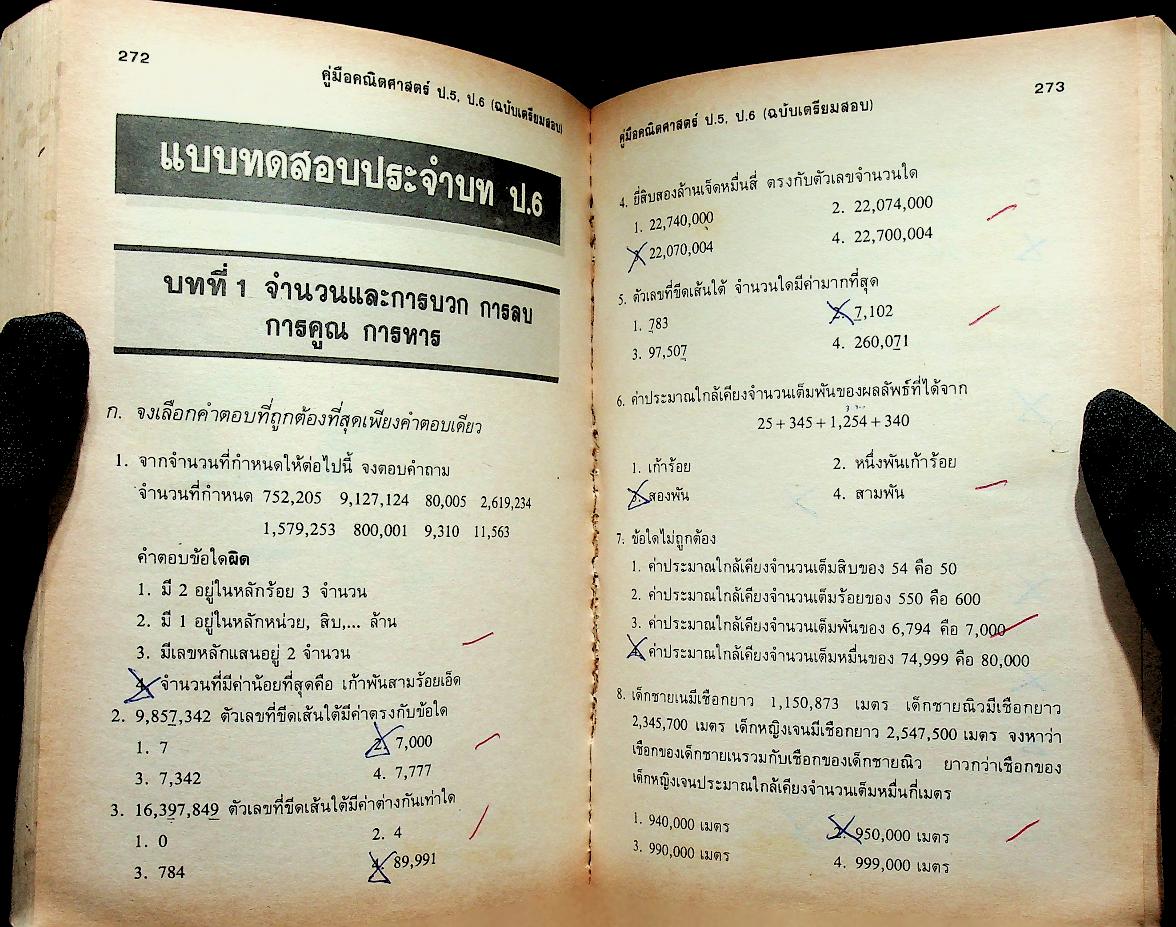 272
คู่มือคณิตศาสตร์ ป.5, ป.6 (ฉบับเตรียมสอบ)
แบบทดสอบประจำบท ป.6
บทที่ 1 จำนวนและการบวก การลบ
การคูณ การหาร
ก. จงเลือกคำตอบที่ถูกต้องที่สุดเพียงคำตอบเดียว
1. จากจำนวนที่กำหนดให้ต่อไปนี้ จงตอบคำถาม
จำนวนที่กำหนด 752,205 9,127,124 80,005 2,619,234
1,579,253 800,001 9,310 11,563
คำตอบข้อใดผิด
1. มี 2 อยู่ในหลักร้อย 3 จำนวน
2. มี 1 อยู่ในหลักหน่วย, สิบ,... ล้าน
3. มีเลขหลักแสนอยู่ 2 จำนวน
4. จำนวนที่มีค่าน้อยที่สุดคือ เก้าพันสามร้อยเอ็ด
2. 9,857,342 ตัวเลขที่ขีดเส้นใต้มีค่าตรงกับข้อใด
1. 7 2. 7,000
3. 7,342 4. 7,777
3. 16,397,849 ตัวเลขที่ขีดเส้นใต้มีค่าต่างกันเท่าใด
1. 0 2. 4
3. 784 4. 89,991
273
คู่มือคณิตศาสตร์ ป.5, ป.6 (ฉบับเตรียมสอบ)
4. ยี่สิบสองล้านเจ็ดหมื่นสี่ ตรงกับตัวเลขจำนวนใด
1. 22,740,000 2. 22,074,000
3. 22,070,004 4. 22,700,004
5. ตัวเลขที่ขีดเส้นใต้ จำนวนใดมีค่ามากที่สุด
1. 783 2. 7,102
3. 97,507 4. 260,071
6. ค่าประมาณใกล้เคียงจำนวนเต็มพันของผลลัพธ์ที่ได้จาก
25 + 345 + 1,254 + 340
1. เก้าร้อย 2. หนึ่งพันเก้าร้อย
3. สองพัน 4. สามพัน
7. ข้อใดไม่ถูกต้อง
1. ค่าประมาณใกล้เคียงจำนวนเต็มสิบของ 54 คือ 50
2. ค่าประมาณใกล้เคียงจำนวนเต็มร้อยของ 550 คือ 600
3. ค่าประมาณใกล้เคียงจำนวนเต็มพันของ 6,794 คือ 7,000
4. ค่าประมาณใกล้เคียงจำนวนเต็มหมื่นของ 74,999 คือ 80,000
8. เด็กชายเนมีเชือกยาว 1,150,873 เมตร เด็กชายณิวมีเชือกยาว
2,345,700 เมตร เด็กหญิงเจนมีเชือกยาว 2,547,500 เมตร จงหาว่า
เชือกของเด็กชายเนรวมกับเชือกของเด็กชายณิว ยาวกว่าเชือกของ
เด็กหญิงเจนประมาณใกล้เคียงจำนวนเต็มหมื่นกี่เมตร
1. 940,000 เมตร 2. 950,000 เมตร
3. 990,000 เมตร 4. 999,000 เมตร